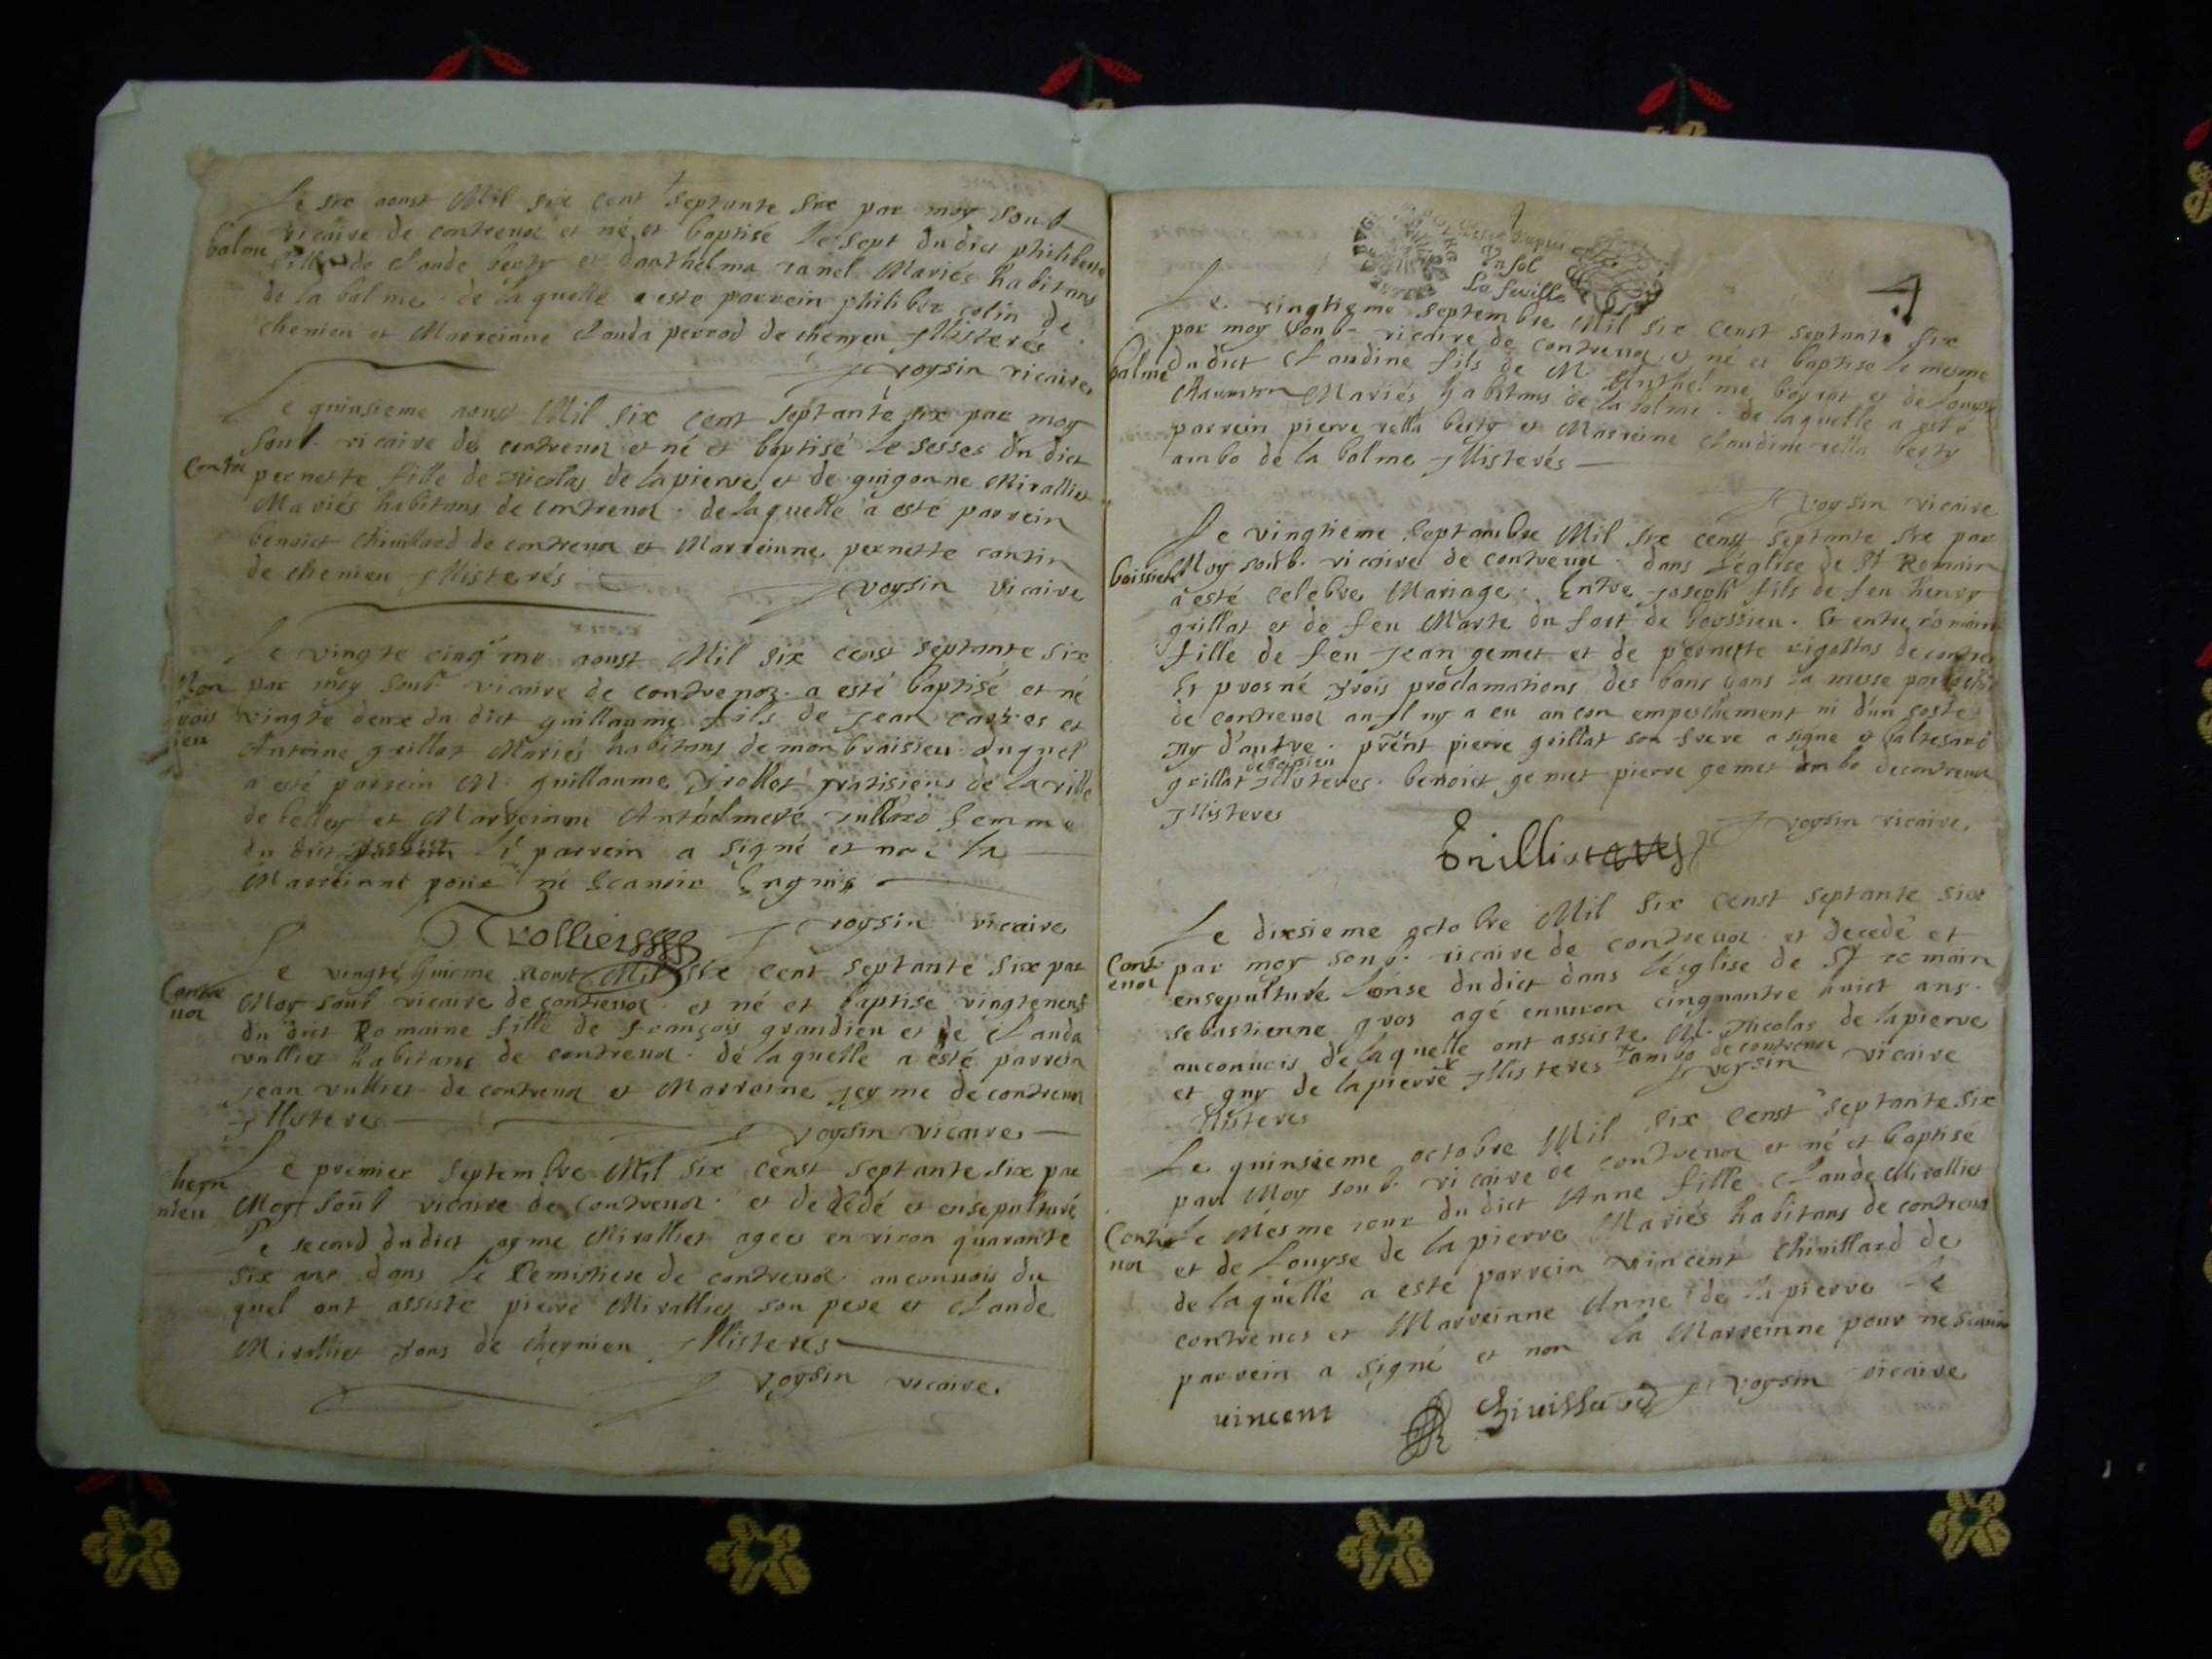 Le six aoust Mil six cent septante six par moy soub
vicaire de contrevoz et né et baptisé le sept du dict philiberte
balme
fille de claude berty et danthelma ranel Mariés habitans
de la balme. de laquelle a esté parrein philiber colin de
chemieu et Marreinne clauda perrod de chemyeu Jllisterés
J voysin vicaire
Le quinsieme aoust Mil six cent septante six par moy
soub. vicaire de contrevoz et né et baptisé le du dict
Contre
pernette fille de Nicolas de lapierre et de guigonne Mirallier
Mariés habitans de contrevoz. de laquelle a esté parrein
benoict chivillard de contrevoz et Marreinne pernette contin
de chemieu Jllisterés
J voysin vicaire
Le vingte cinq.me aoust Mil six censt septante six
Mon
par moy soub. vicaire de contrevoz. a esté baptisé et né
vingte deux du dict guillaume fils de Jean et
Antoine grillat Mariés habitans de monbraisieu. duquel
a esté parrein M. guillaume Trollet pratisiens de la ville
de belley et Marreinne Anthelmete Jullard femme
du dict le parrein a signé et non la
Marreinne pour né scavoir
Trollier J voysin vicaire
Le vingte huicme aoust Mil six cent septante six par
Contre
voz
Moy soub vicaire de contrevoz. et né et baptise vingteneuf
du dict Romaine fille de françois grandieu et de Clauda
vullier habitans de contrevoz. de laquelle a esté parrein
Jean vullier de contrevoz et Marraine Jeyme de contrevoz
Jllisteres
J voysin vicaire
Le premier septembre Mil six censt septante six par
heyn
nieu
Moy soub vicaire de Contrevoz. et decédé et ensepulturé
Le second du dict ayme Mirallier agees environ quarante
six ans dans le Cemistiere de contrevoz. auconvois du
quel ont assisté pierre Mirallier son pere et Claude
Mirallier tous de cheynieu Jllisteres
J voysin vicaire.
Un sol
La feuille
4
Le vingtieme septembre Mil six censt septante six
par moy soub. vicaire de contrevoz et né et baptise le mesme
balme
du dict Claudine fils de M. Anthelme et de Louyse
Mariés habitans de la balme. de laquelle a esté
parrein pierre vella berty et Marreine Claudine vella berty
ambo de la balme Jllisterés
J voysin vicaire
Le vingtieme septambre Mil six censt septante six par
boissieu
Moy soub. vicaire de contrevoz. dans l'église de St Romain
a esté celebre Mariage. Entre Joseph fils de feu henry
grillat et de feu Marte du fort de boyssieu. Et entre romaine
fille de feu Jean gemet et de pernette rigottas de contrev
Et trois proclamations des bans dans la messe
de contrevoz au n'y a eu aucon empeschement ni d'un costé
ny d'autre. prent pierre grillat son frere a signé et baltesard
de boysieu
grillat Jllisteres. benoict gemet pierre gemet ambo de contrevoz
Jllisteres
J voysin vicaire.
Le dixsieme octobre Mil six censt septante six
Cont
evoz
par moy soub. vicaire de contrevoz. et decedé et
ensepulturé l'onse du dict dans l'ésglise de St romain
sebastienne gros agé environ cinquantre huict ans.
auconvois de laquelle ont assiste M. Nicolas de lapierre
et guy de lapierre Jllisteres ambo de contrevoz
J voysin vicaire
Jllisteres
Le quinsieme octobre Mil six censt septante six
par Moy soub. vicaire de contrevoz et né et baptisé
Contre
voz
le Mesme iour du dict Anne fille Claude Mirallier
et de Louyse de la pierre Mariés habitans de contrevoz
de laquelle a esté parrein vincent chivillard de
contrevos et Marreinne Anne de la pierre le
parrein a signé et non la Marreinne pour ne scavoir
J voysin vicaire
vincent Chivillard